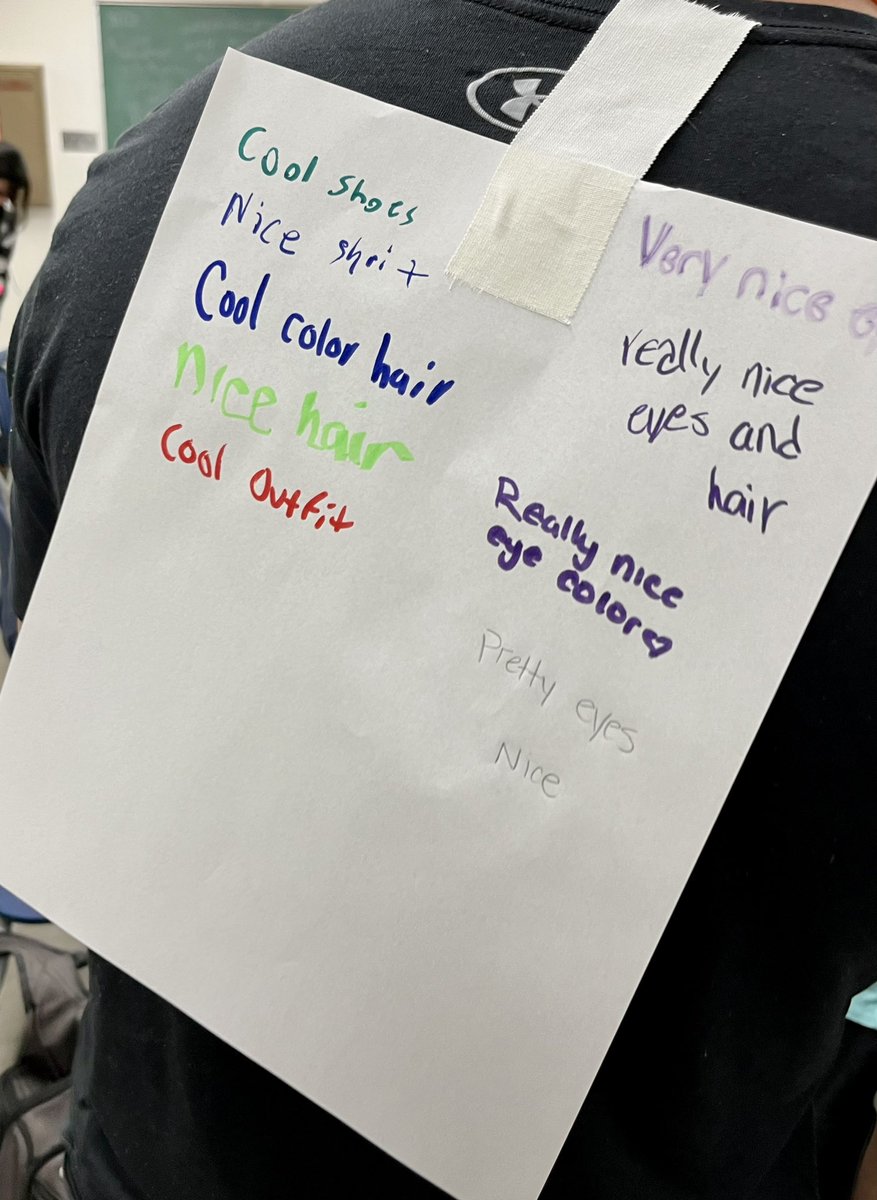 Cool shoes
Nice shrit
Cool color hair
nice hair
Cool Outfit
Very nice
really nice
eyes and
hair
Really nice
eye color♡
Pretty eyes
Nice